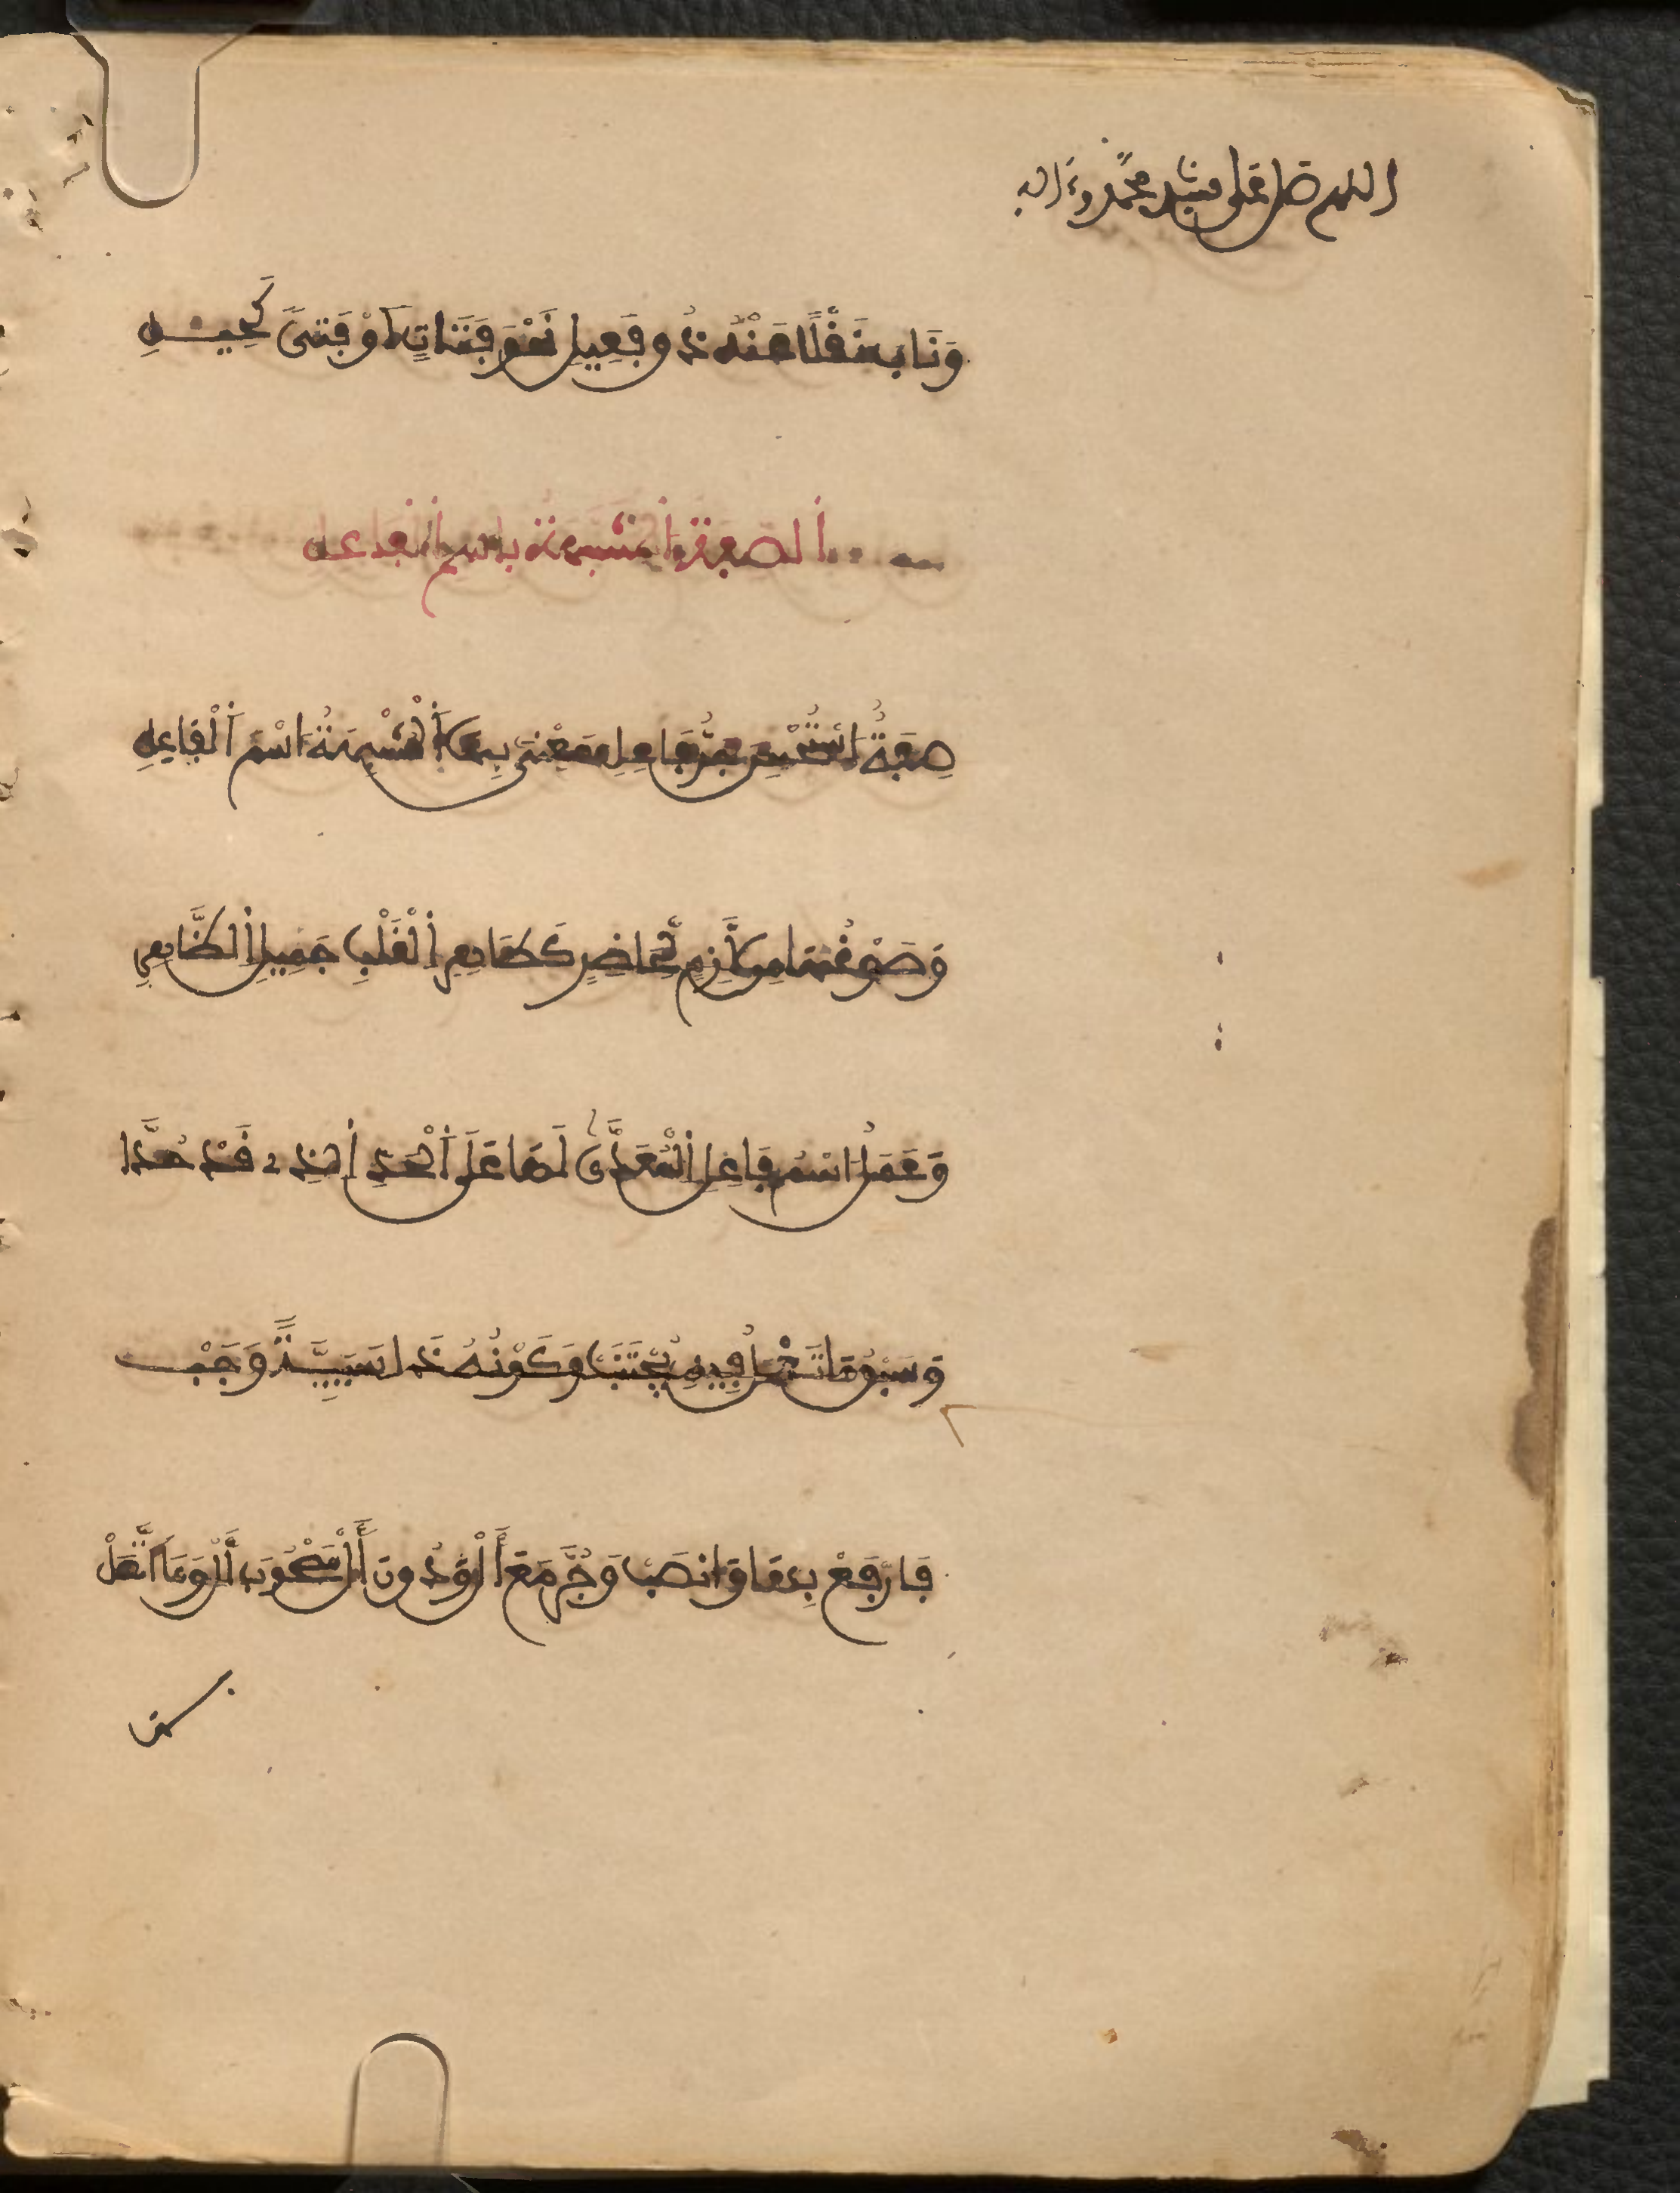 اللهم صل على سيد محمد وءاله
وَنَابَ نَقْلًا عَنْهُ ذُو فَعِيلِ نَحْوَ فَتَاتٍ أَوْ فَتىً كَحِيلِ
ألصفة المشبهة باسم الفاعل
صِفَةٌ اسْتُحْسِنَ جَرُّ فَاعِلِ مَعْنىً بِهَا أَلْمُشْبِهَةُ اسْمَ أَلْفَاعِلِ
وَصَوْغُهَا مِن لَّازِمٍ لِّحَاضِرِ كَطَاهِرِ اِلْقَلْبِ جَمِيلِ اِلظَّاهِرِ
وَعَمَلُ اسْمِ فَاعِلِ اِلْمُعَدَّى لَهَا عَلَى أَلْحَدِّ اِلذِي قَدْ حُدَّا
وَسَبْقُ مَا تَعْمَلُ فِيهِ يُجْتَنَبْ وَكَوْنُهُ ذَا سَبَبِيَّةً وَجَبْ
فَارْفَعْ بِهَا وَانصَبْ وَجُرَّ مَعَ أَلْ وَدُونَ أَلْ مَصْحُوبَ أَلْ وَمَا اتَّصَلْ